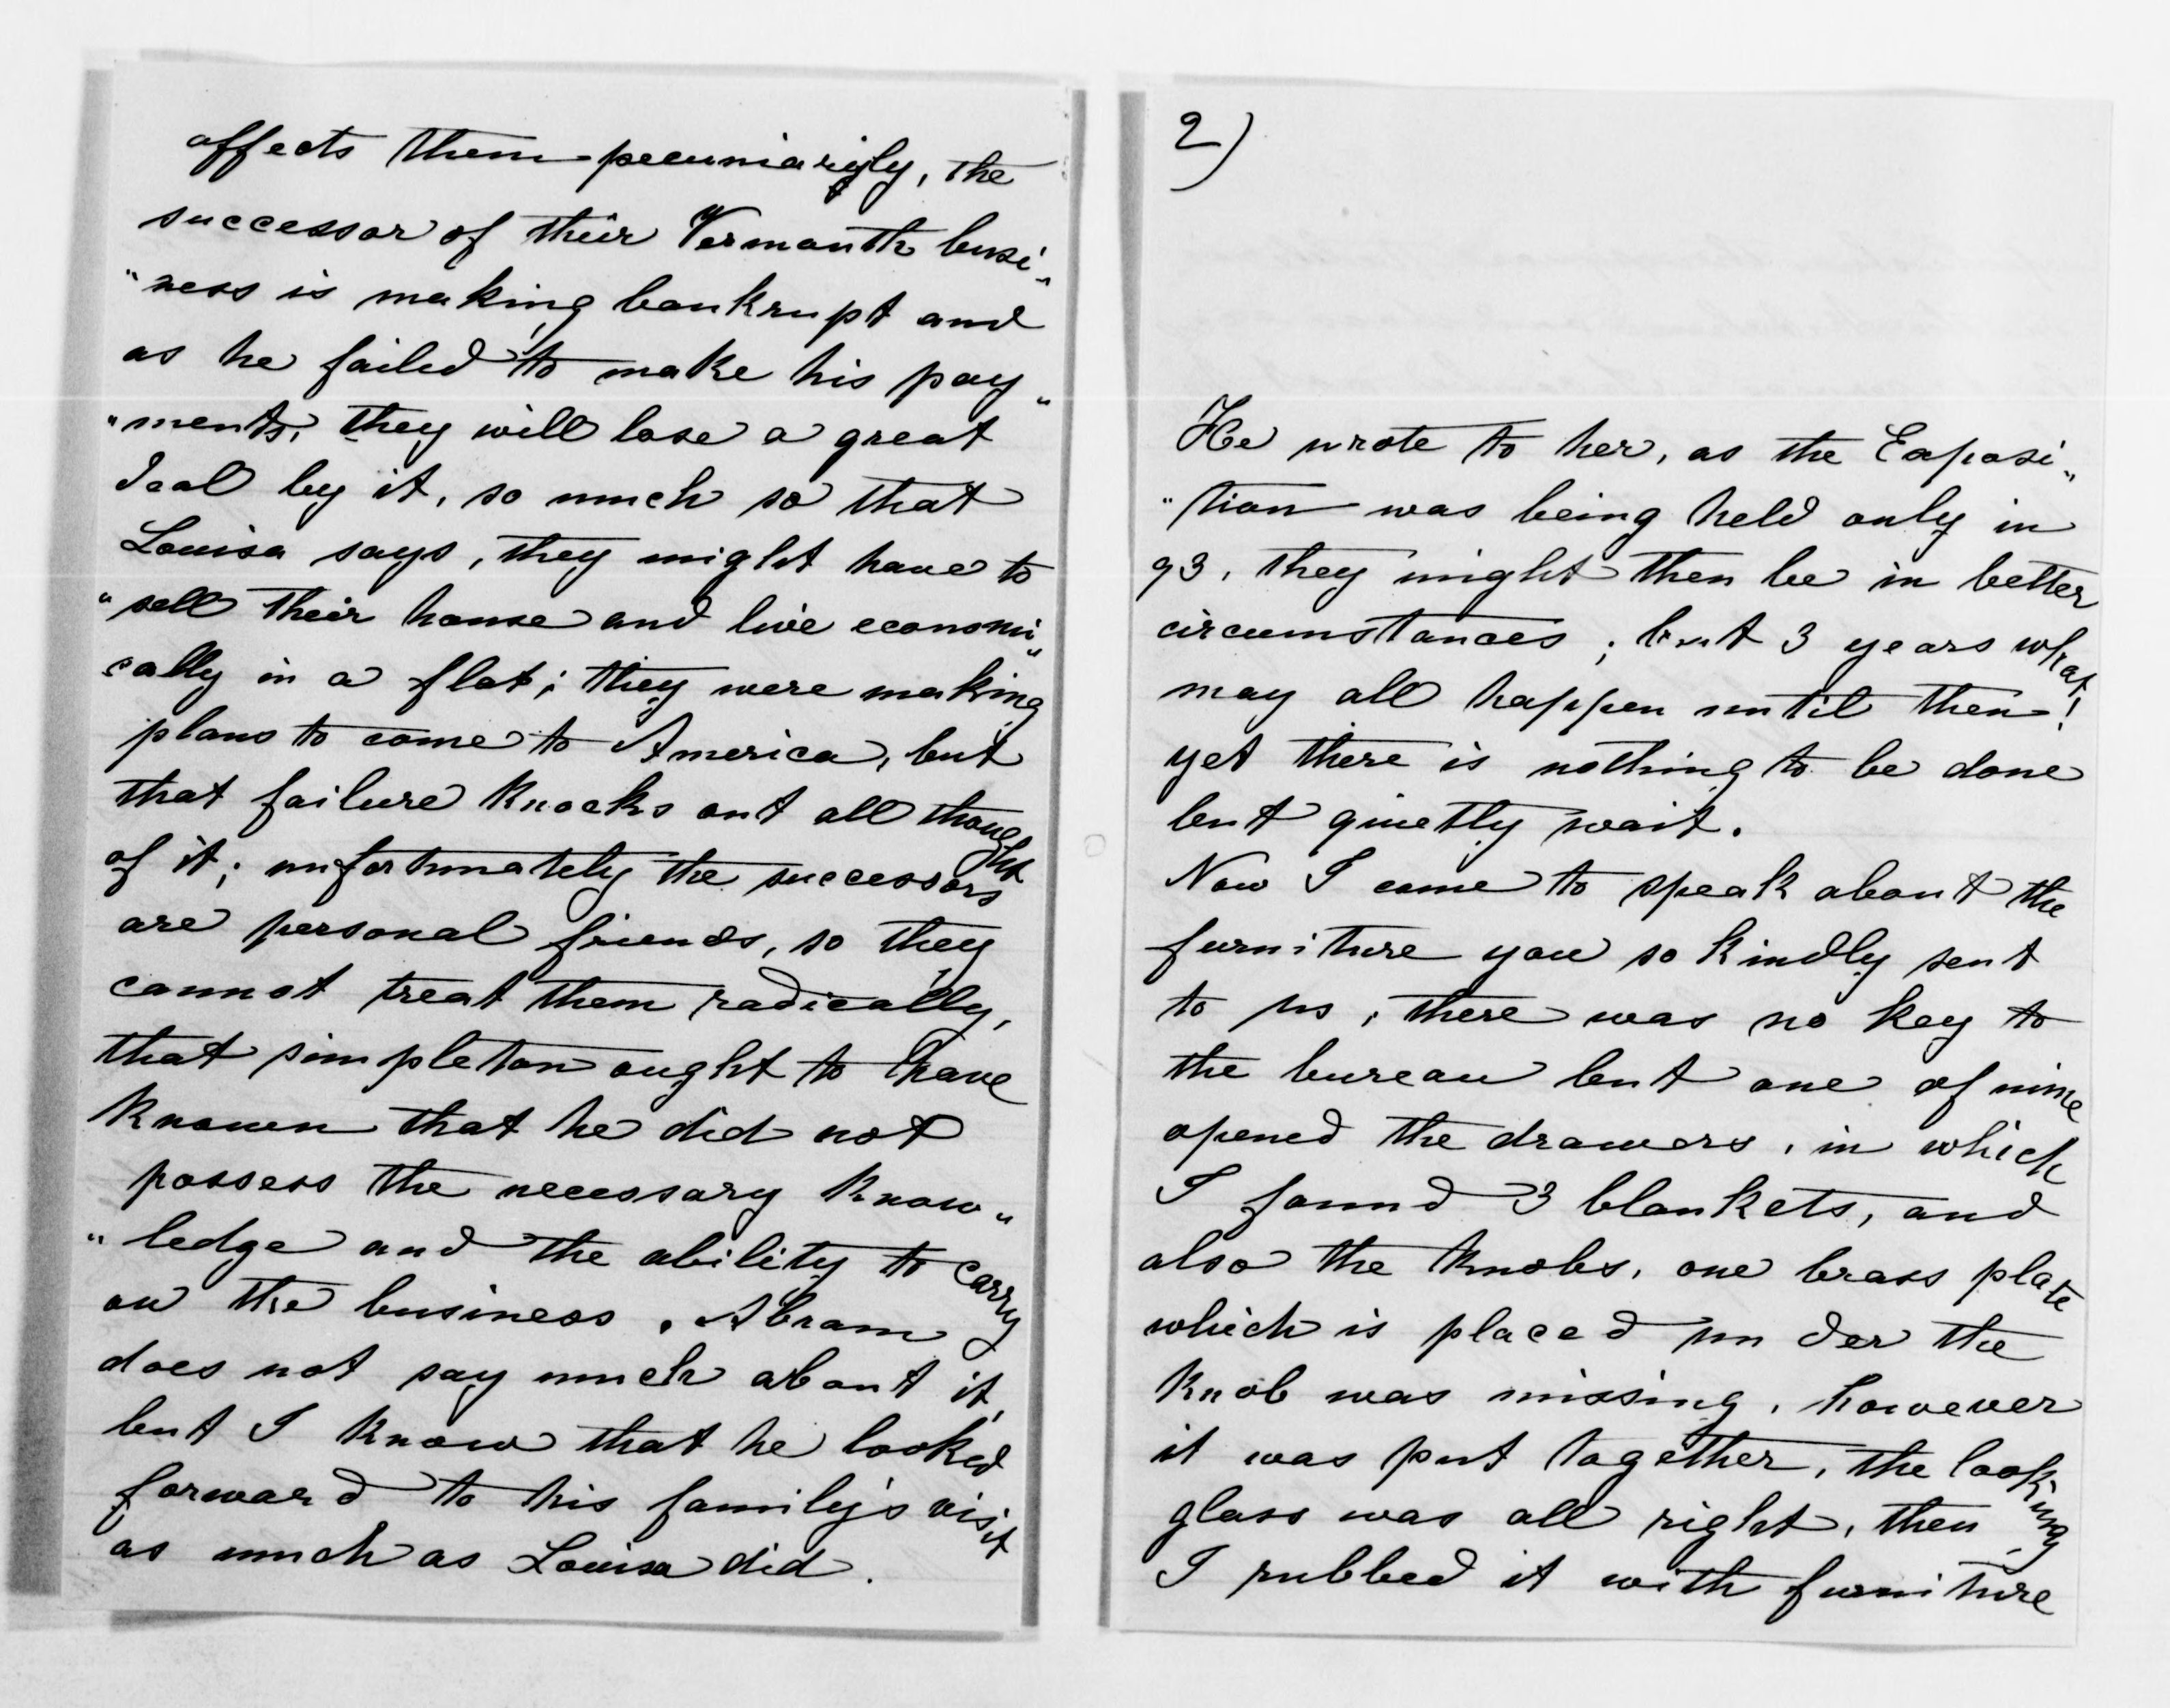 affects them pecuniarily, the
successor of their Vermouth busi„
"ness is making bankrupt and
as he failed to make his pay„
"ments, they will lose a great
deal by it, so much so that
Louisa says, they might have to
"sell their house and live economi„
cally in a flat; they were making
plans to come to America, but
that failure knocks out all thought
of it; unfortunately the successors
are personal friends, so they
cannot treat them radically,
that simpleton ought to have
known that he did not
possess the necessary know„
"ledge and the ability to carry
on the business. Abram
does not say much about it,
but I know that he looked
forward to his family's visit
as much as Louisa did.
2)
He wrote to her, as the Exposi„
"tion was being held only in
93, they might then be in better
circumstances; but 3 years what
may all happen until then!
yet there is nothing to be done
but quietly wait.
Now I come to speak about the
furniture you so kindly sent
to us, there was no key to
the bureau but one of mine
opened the drawers, in which
I found 3 blankets, and
also the knobs, one brass plate
which is placed under the
knob was missing, however
it was put together, the looking
glass was all right, then
I rubbed it with furniture